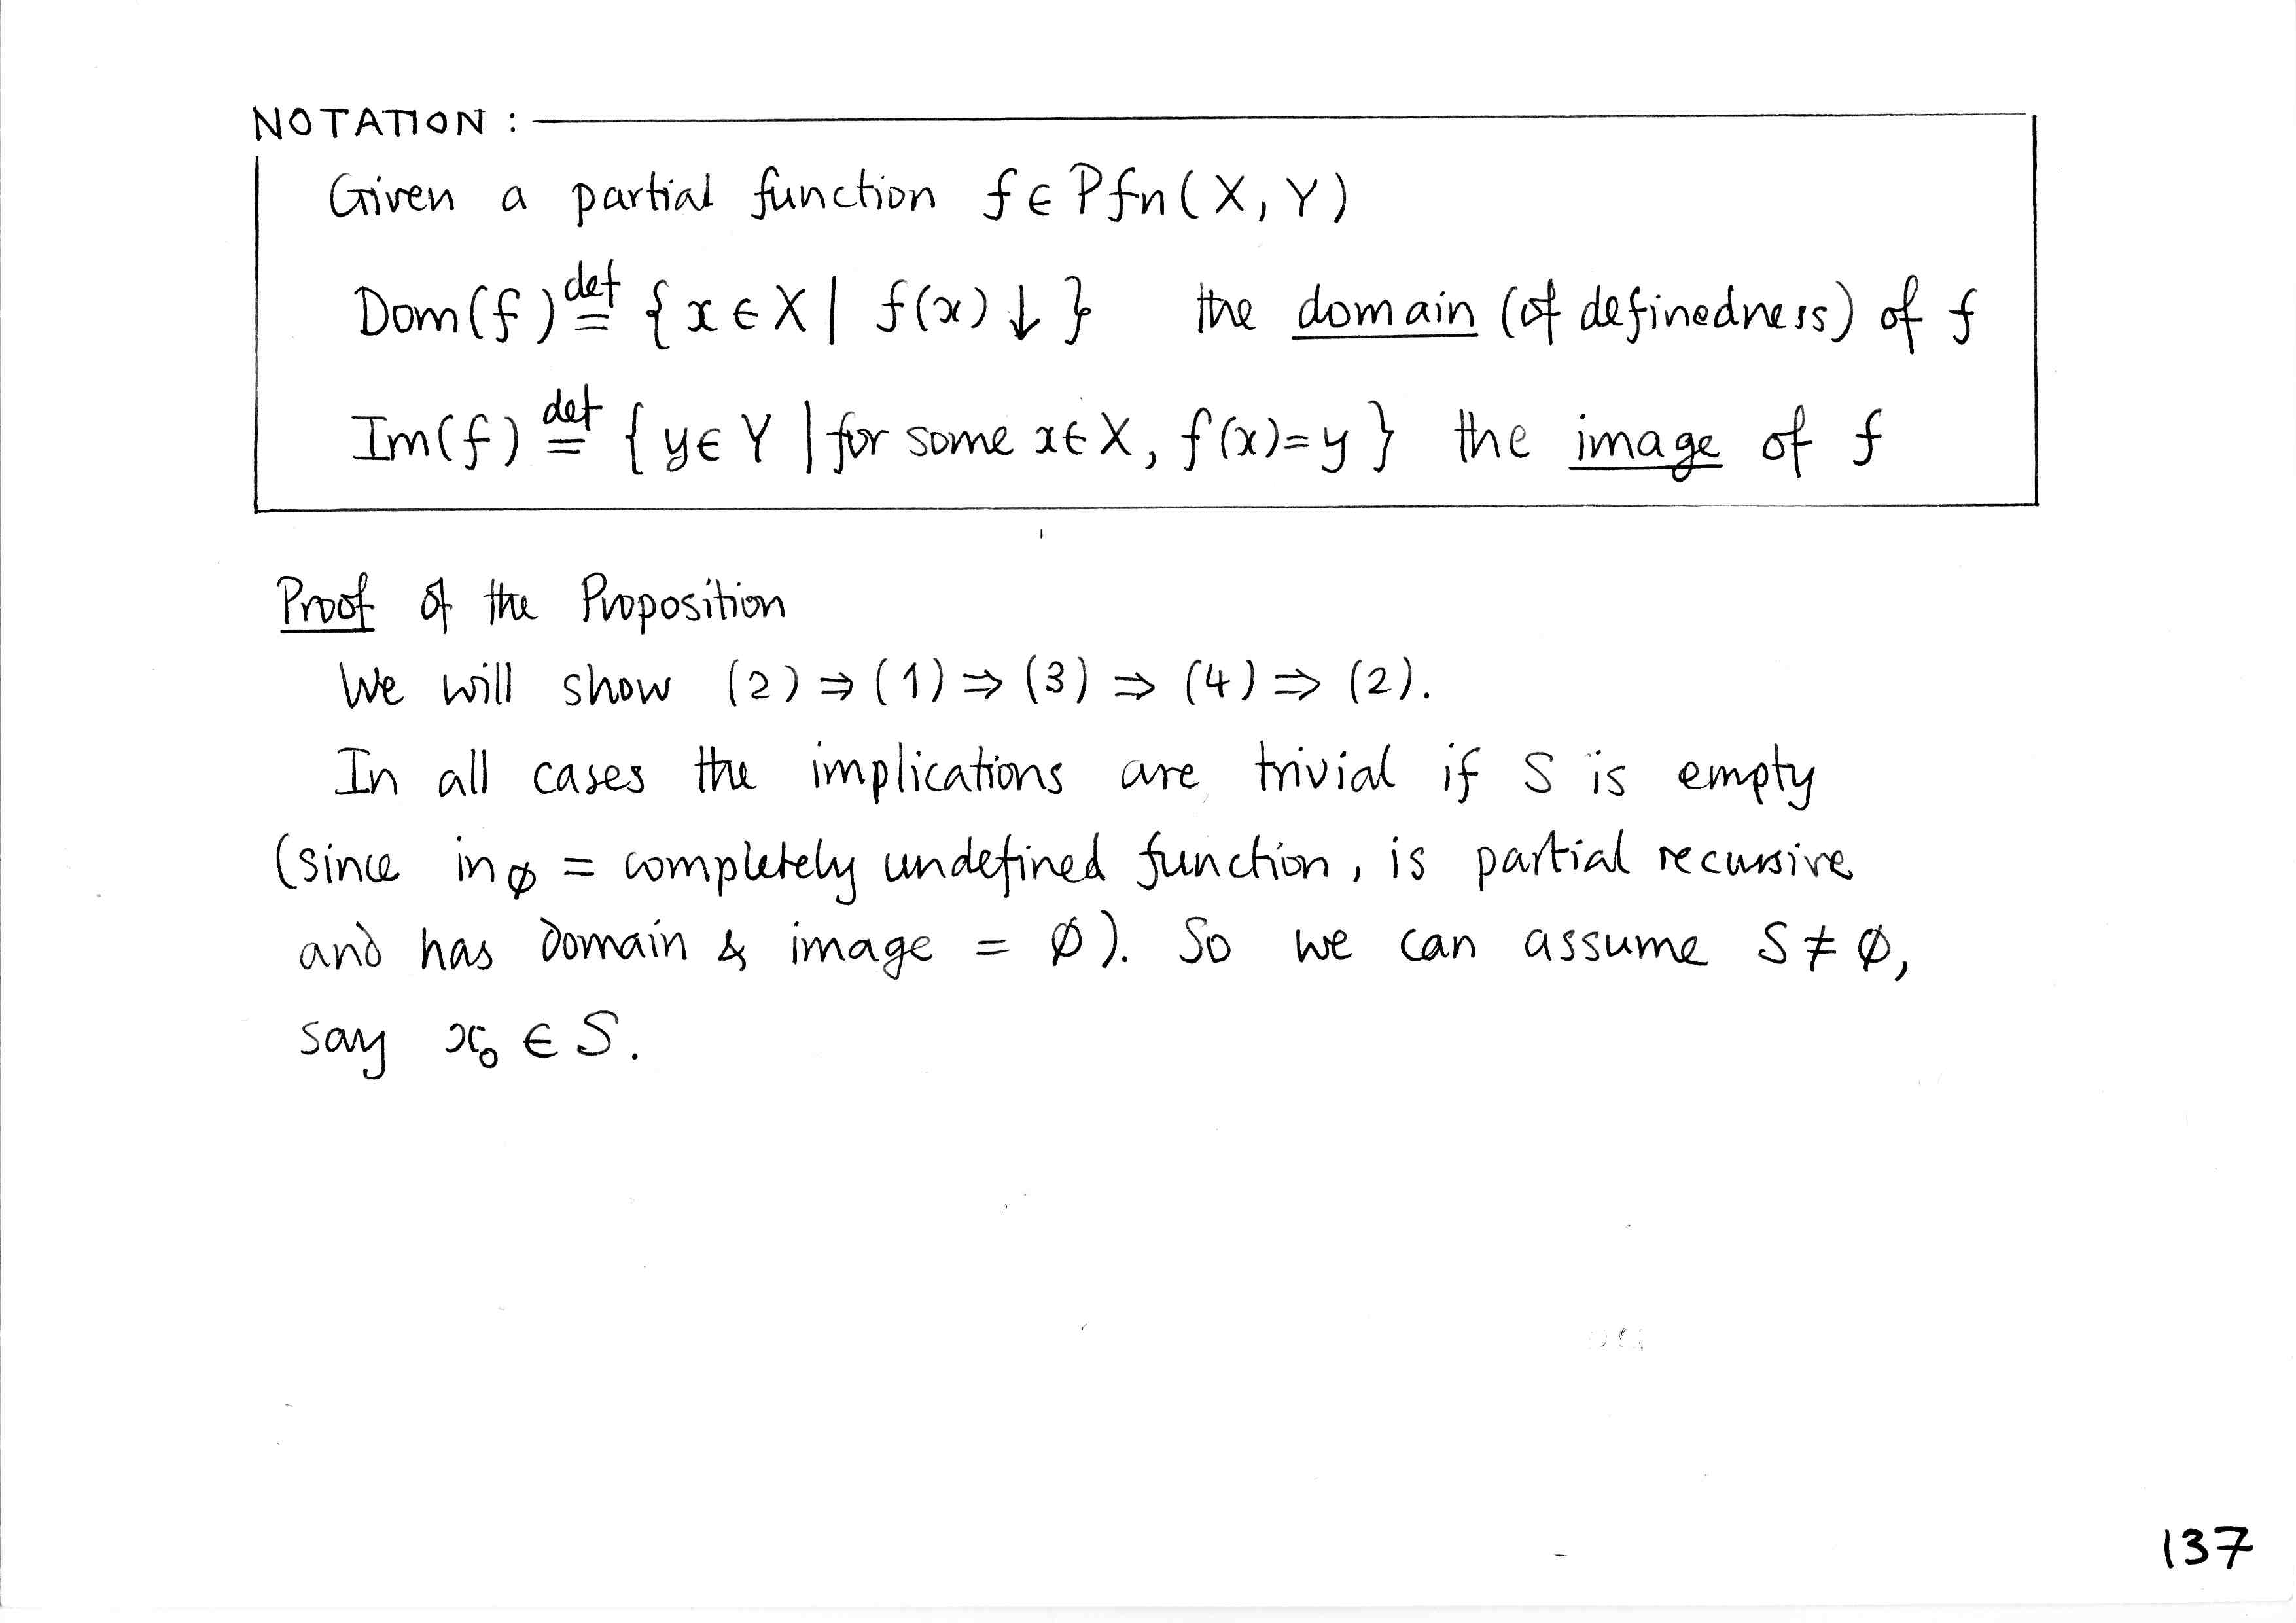 NOTATION :
Given a partial function f ∈ Pfn(X, Y)
Dom(f) ≝ { x ∈ X | f(x)↓ } the domain (of definedness) of f
Im(f) ≝ { y ∈ Y | for some x ∈ X, f(x)=y } the image of f
Proof of the Proposition
We will show (2) ⇒ (1) ⇒ (3) ⇒ (4) ⇒ (2).
In all cases the implications are trivial if S is empty
(since in_∅ = completely undefined function, is partial recursive
and has domain & image = ∅). So we can assume S ≠ ∅,
say x₀ ∈ S.
137